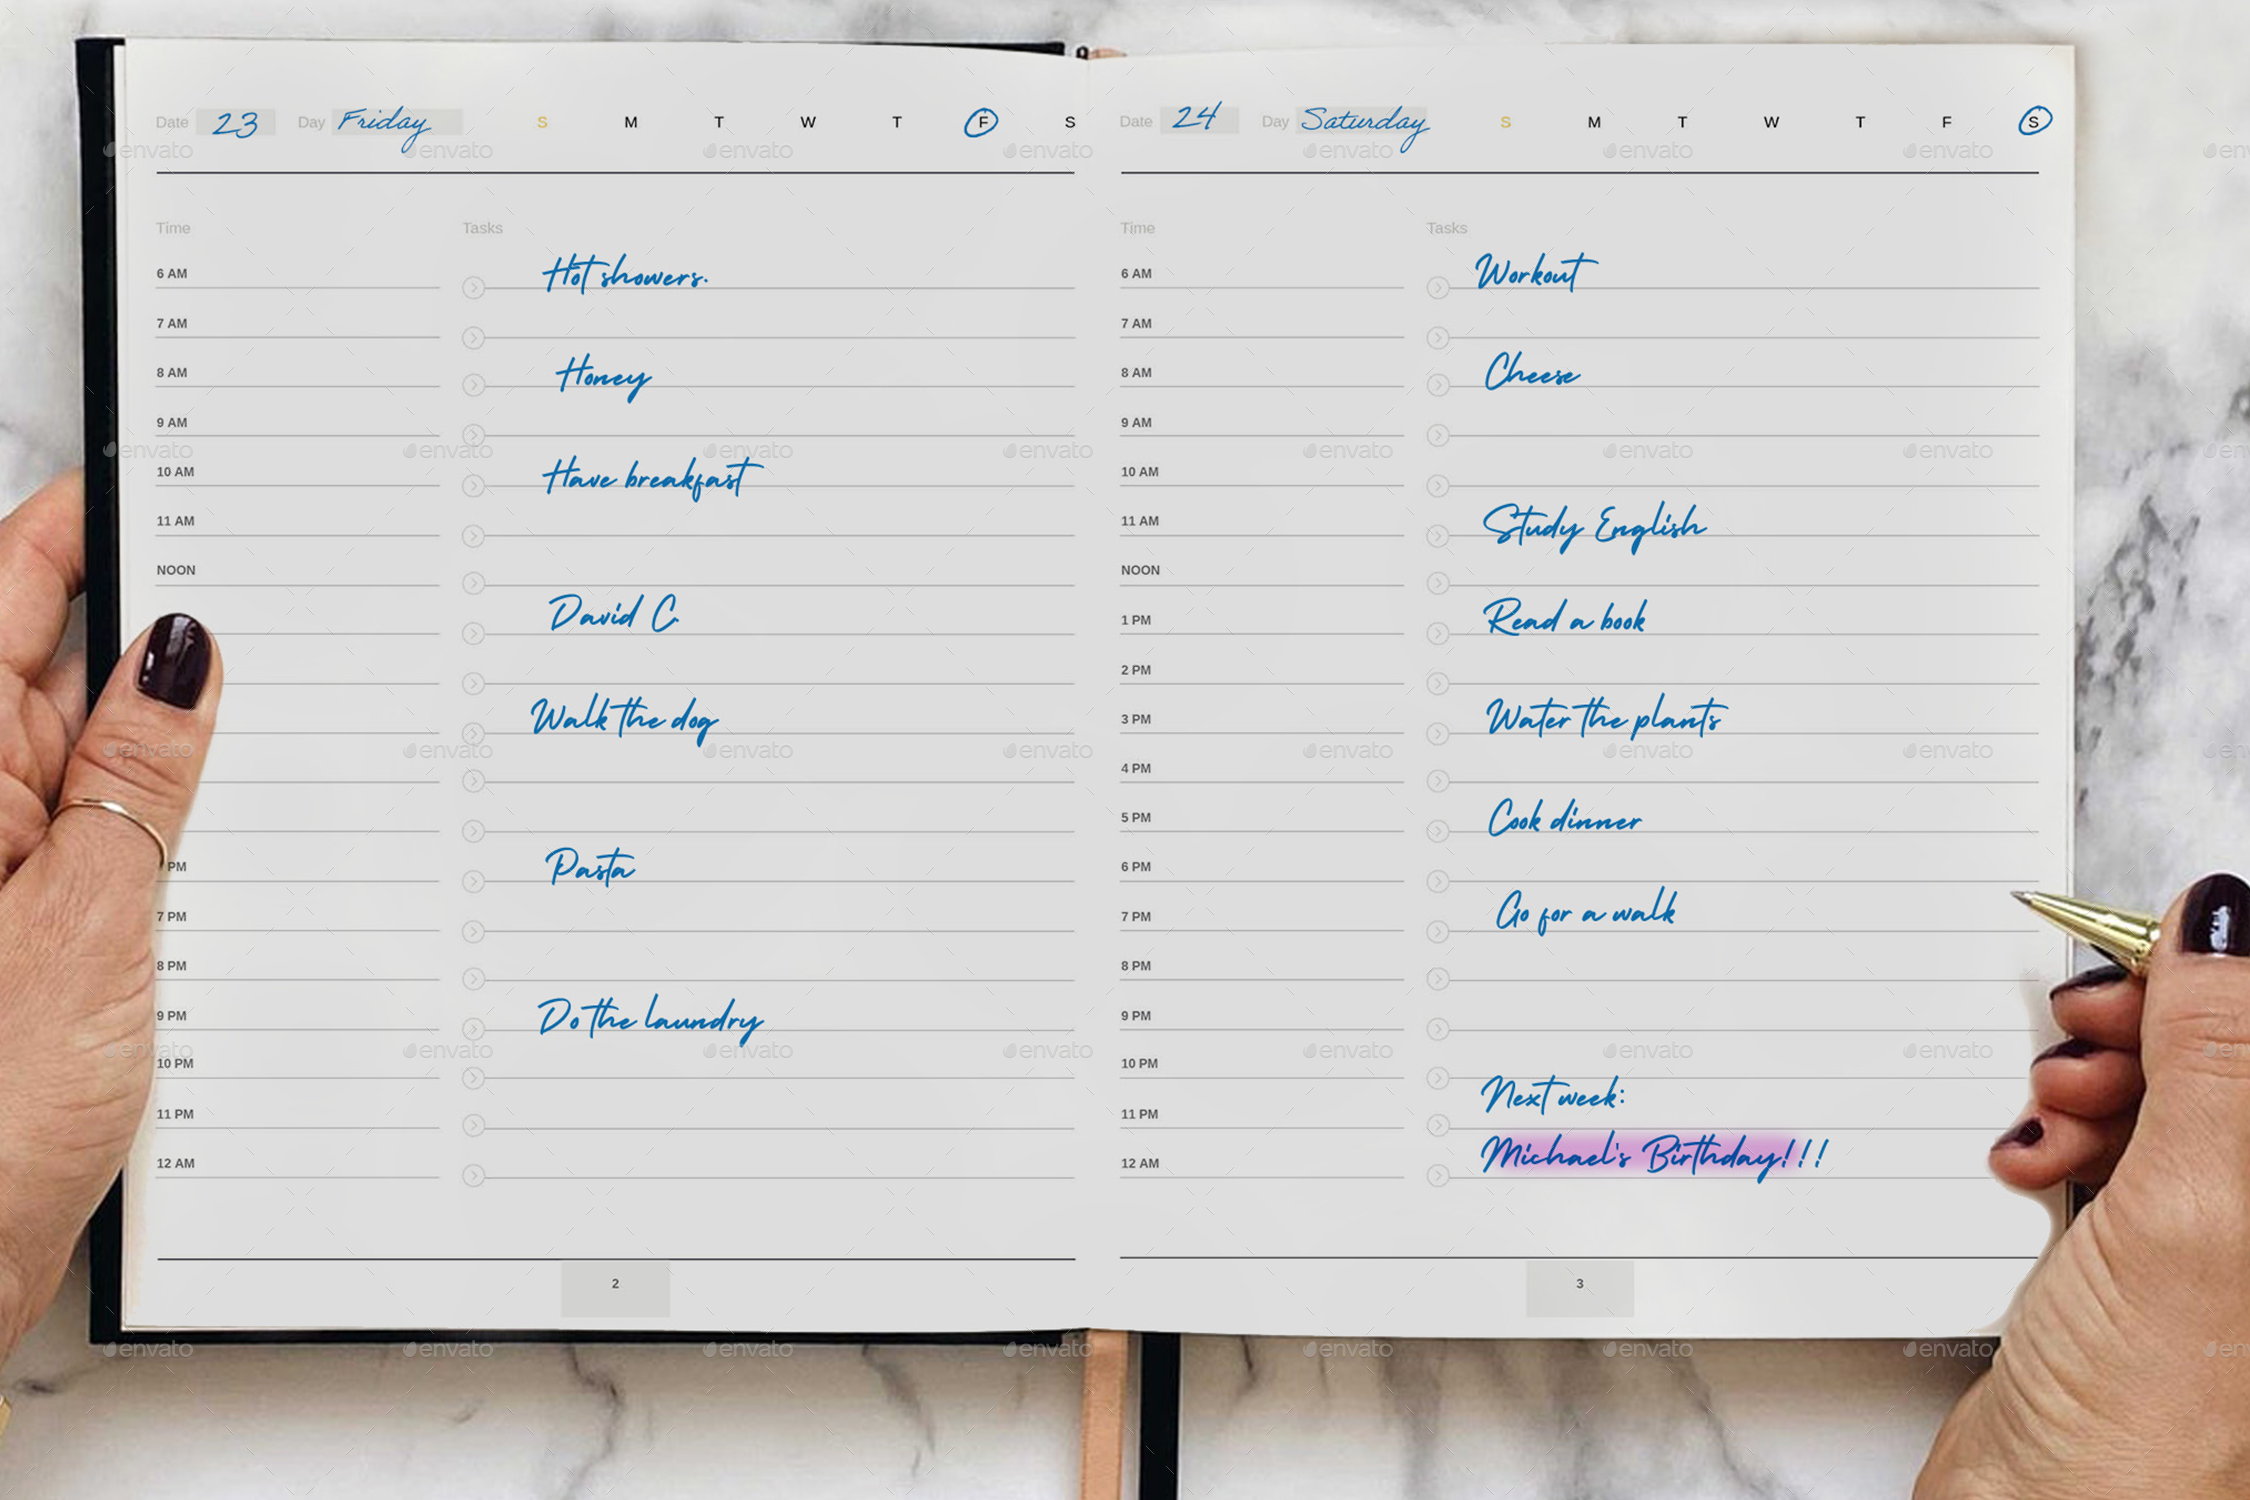 Date 23 Day Friday S M T W T F S
Time Tasks
6 AM Hot showers.
7 AM
8 AM Honey
9 AM
10 AM Have breakfast
11 AM
NOON
David C.
Walk the dog
PM Pasta
7 PM
8 PM
9 PM Do the laundry
10 PM
11 PM
12 AM
2
Date 24 Day Saturday S M T W T F S
Time Tasks
6 AM Workout
7 AM
8 AM Cheese
9 AM
10 AM
11 AM Study English
NOON
1 PM Read a book
2 PM
3 PM Water the plants
4 PM
5 PM Cook dinner
6 PM
7 PM Go for a walk
8 PM
9 PM
10 PM
Next week:
11 PM
12 AM Michael's Birthday!!!
3
envato